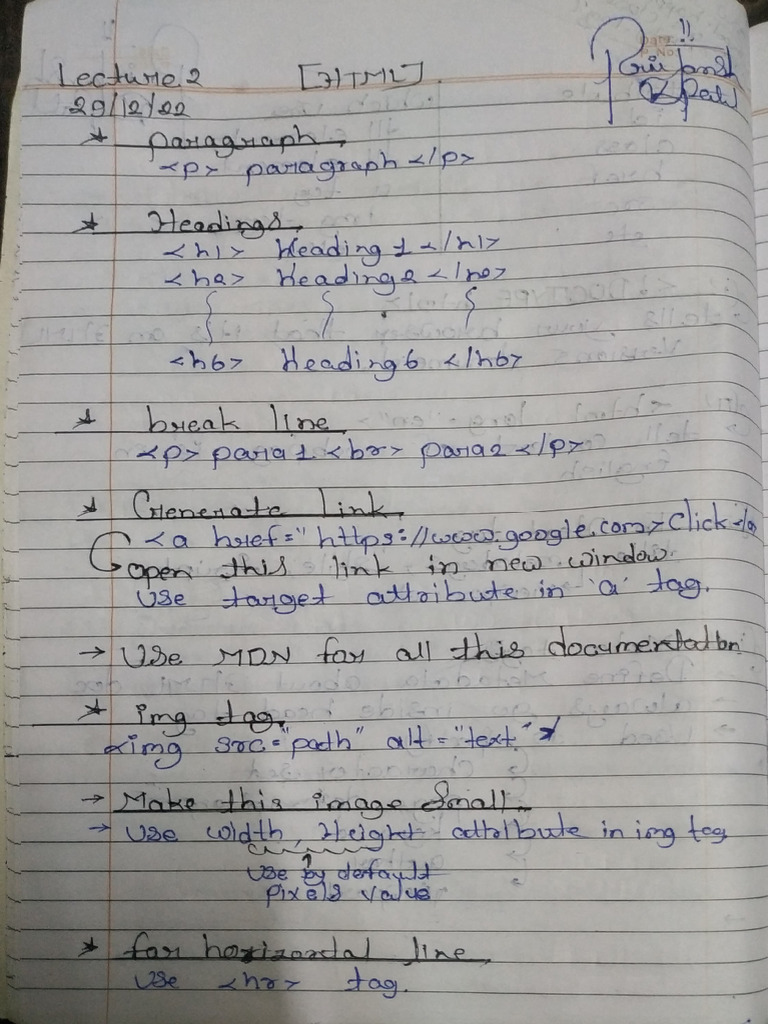 Lecture 2 [HTML]
29/12/22
* paragraph
<p> paragraph </p>
* Headings
<h1> Heading 1 </h1>
<h2> Heading 2 </h2>
<h6> Heading 6 </h6>
* break line
<p> para 1 <br> para 2 </p>
* Generate link
<a href="https://www.google.com> Click </a
open this link in new window
Use target attribute in 'a' tag.
→ Use MDN for all this documentation
* img tag.
<img src="path" alt="text">
→ Make this image Small.
→ Use width, Height attribute in img tag
Use by default
pixels value
* for horizontal line
Use <hr> tag.